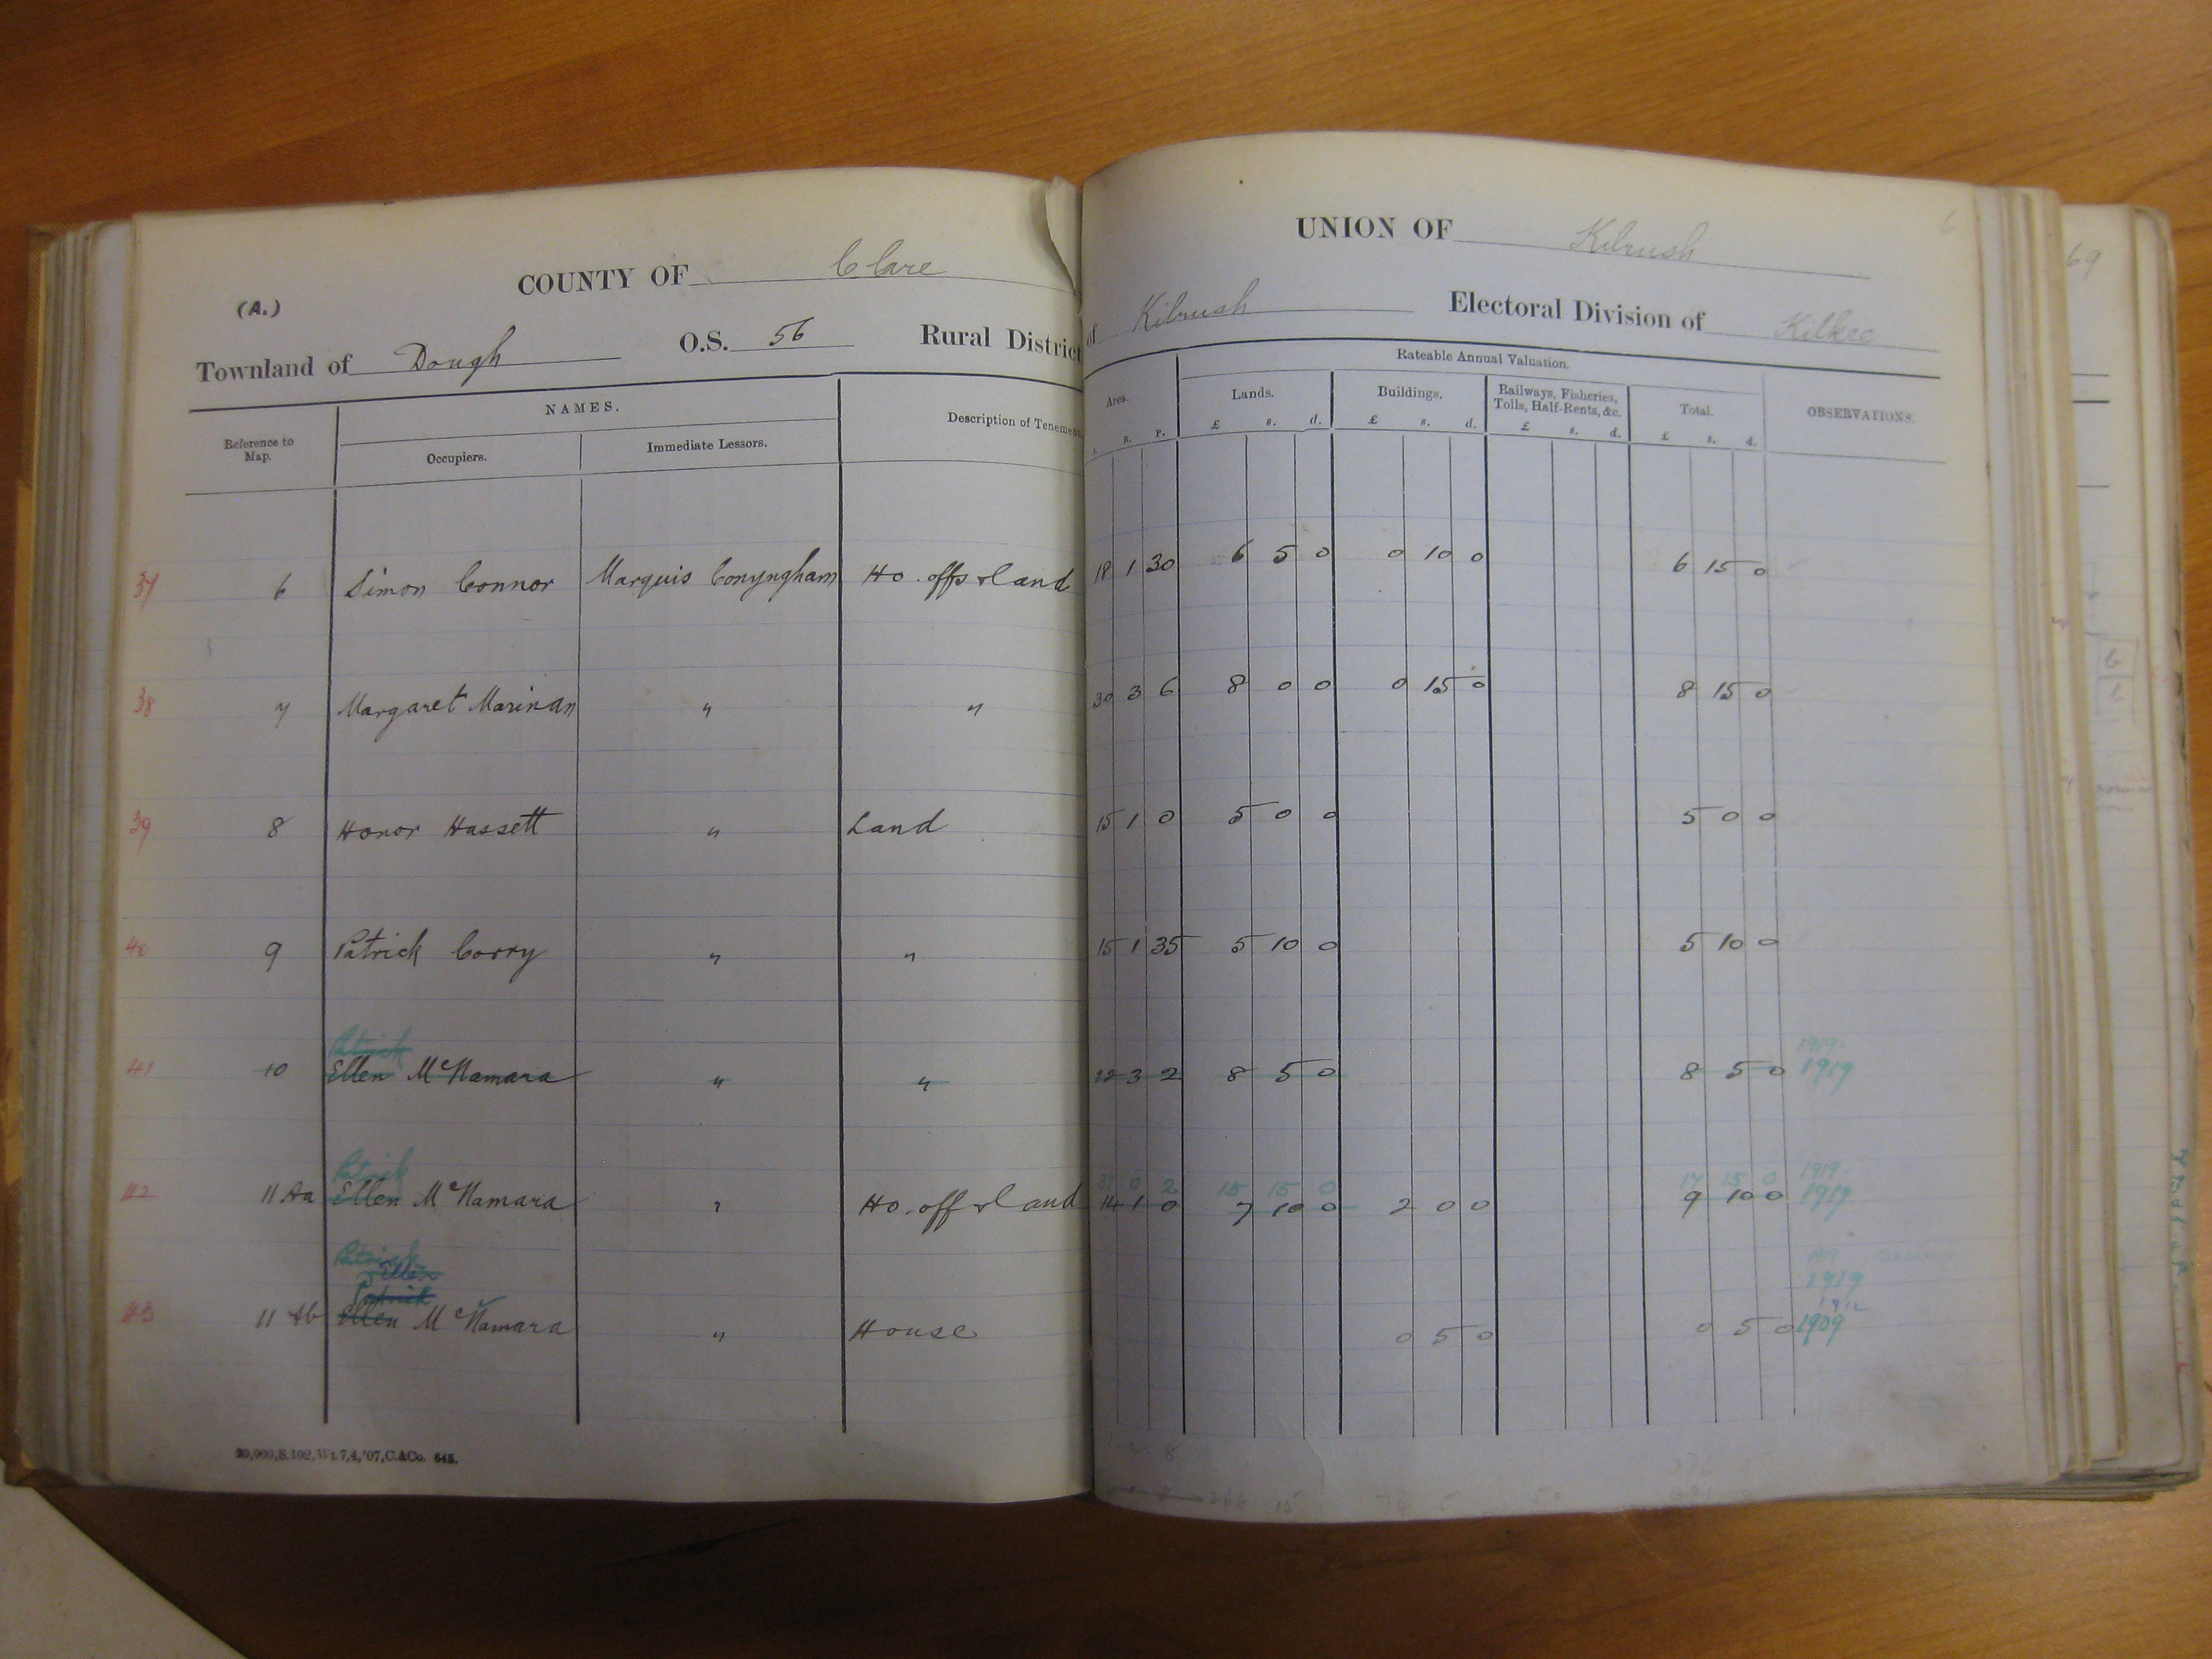 COUNTY OF Clare
UNION OF Kilrush
(A.)
Townland of Dough O.S. 56 Rural District of Kilrush Electoral Division of Kilkee
69
Reference to Map.
NAMES.
Occupiers.
Immediate Lessors.
Description of Tenemen
Area.
R. P.
Rateable Annual Valuation.
Lands.
£ s. d.
Buildings.
£ s. d.
Railways, Fisheries, Tolls, Half-Rents, &c.
£ s. d.
Total.
£ s. d.
OBSERVATIONS.
37 6 Simon Connor Marquis Conyngham Ho. offs & land 18 1 30 6 5 0 0 10 0 6 15 0
38 7 Margaret Marinan " " 30 3 6 8 0 0 0 15 0 8 15 0
39 8 Honor Hassett " Land 15 1 0 5 0 0 5 0 0
40 9 Patrick Corry " " 15 1 35 5 10 0 5 10 0
Patrick 1919
41 10 Ellen McNamara " " 22 3 2 8 5 0 8 5 0 1919
Patrick 37 0 2 15 15 0 17 15 0 1919
42 11 Aa Ellen McNamara " Ho. off & land 14 1 0 7 10 0 2 0 0 9 10 0 1919
Patrick
Ellen 1919
Patrick 1912
43 11 Ab Ellen McNamara " House 0 5 0 0 5 0 1909
20,000,S.102,Wt.7,4,'07,C.&Co. 645.